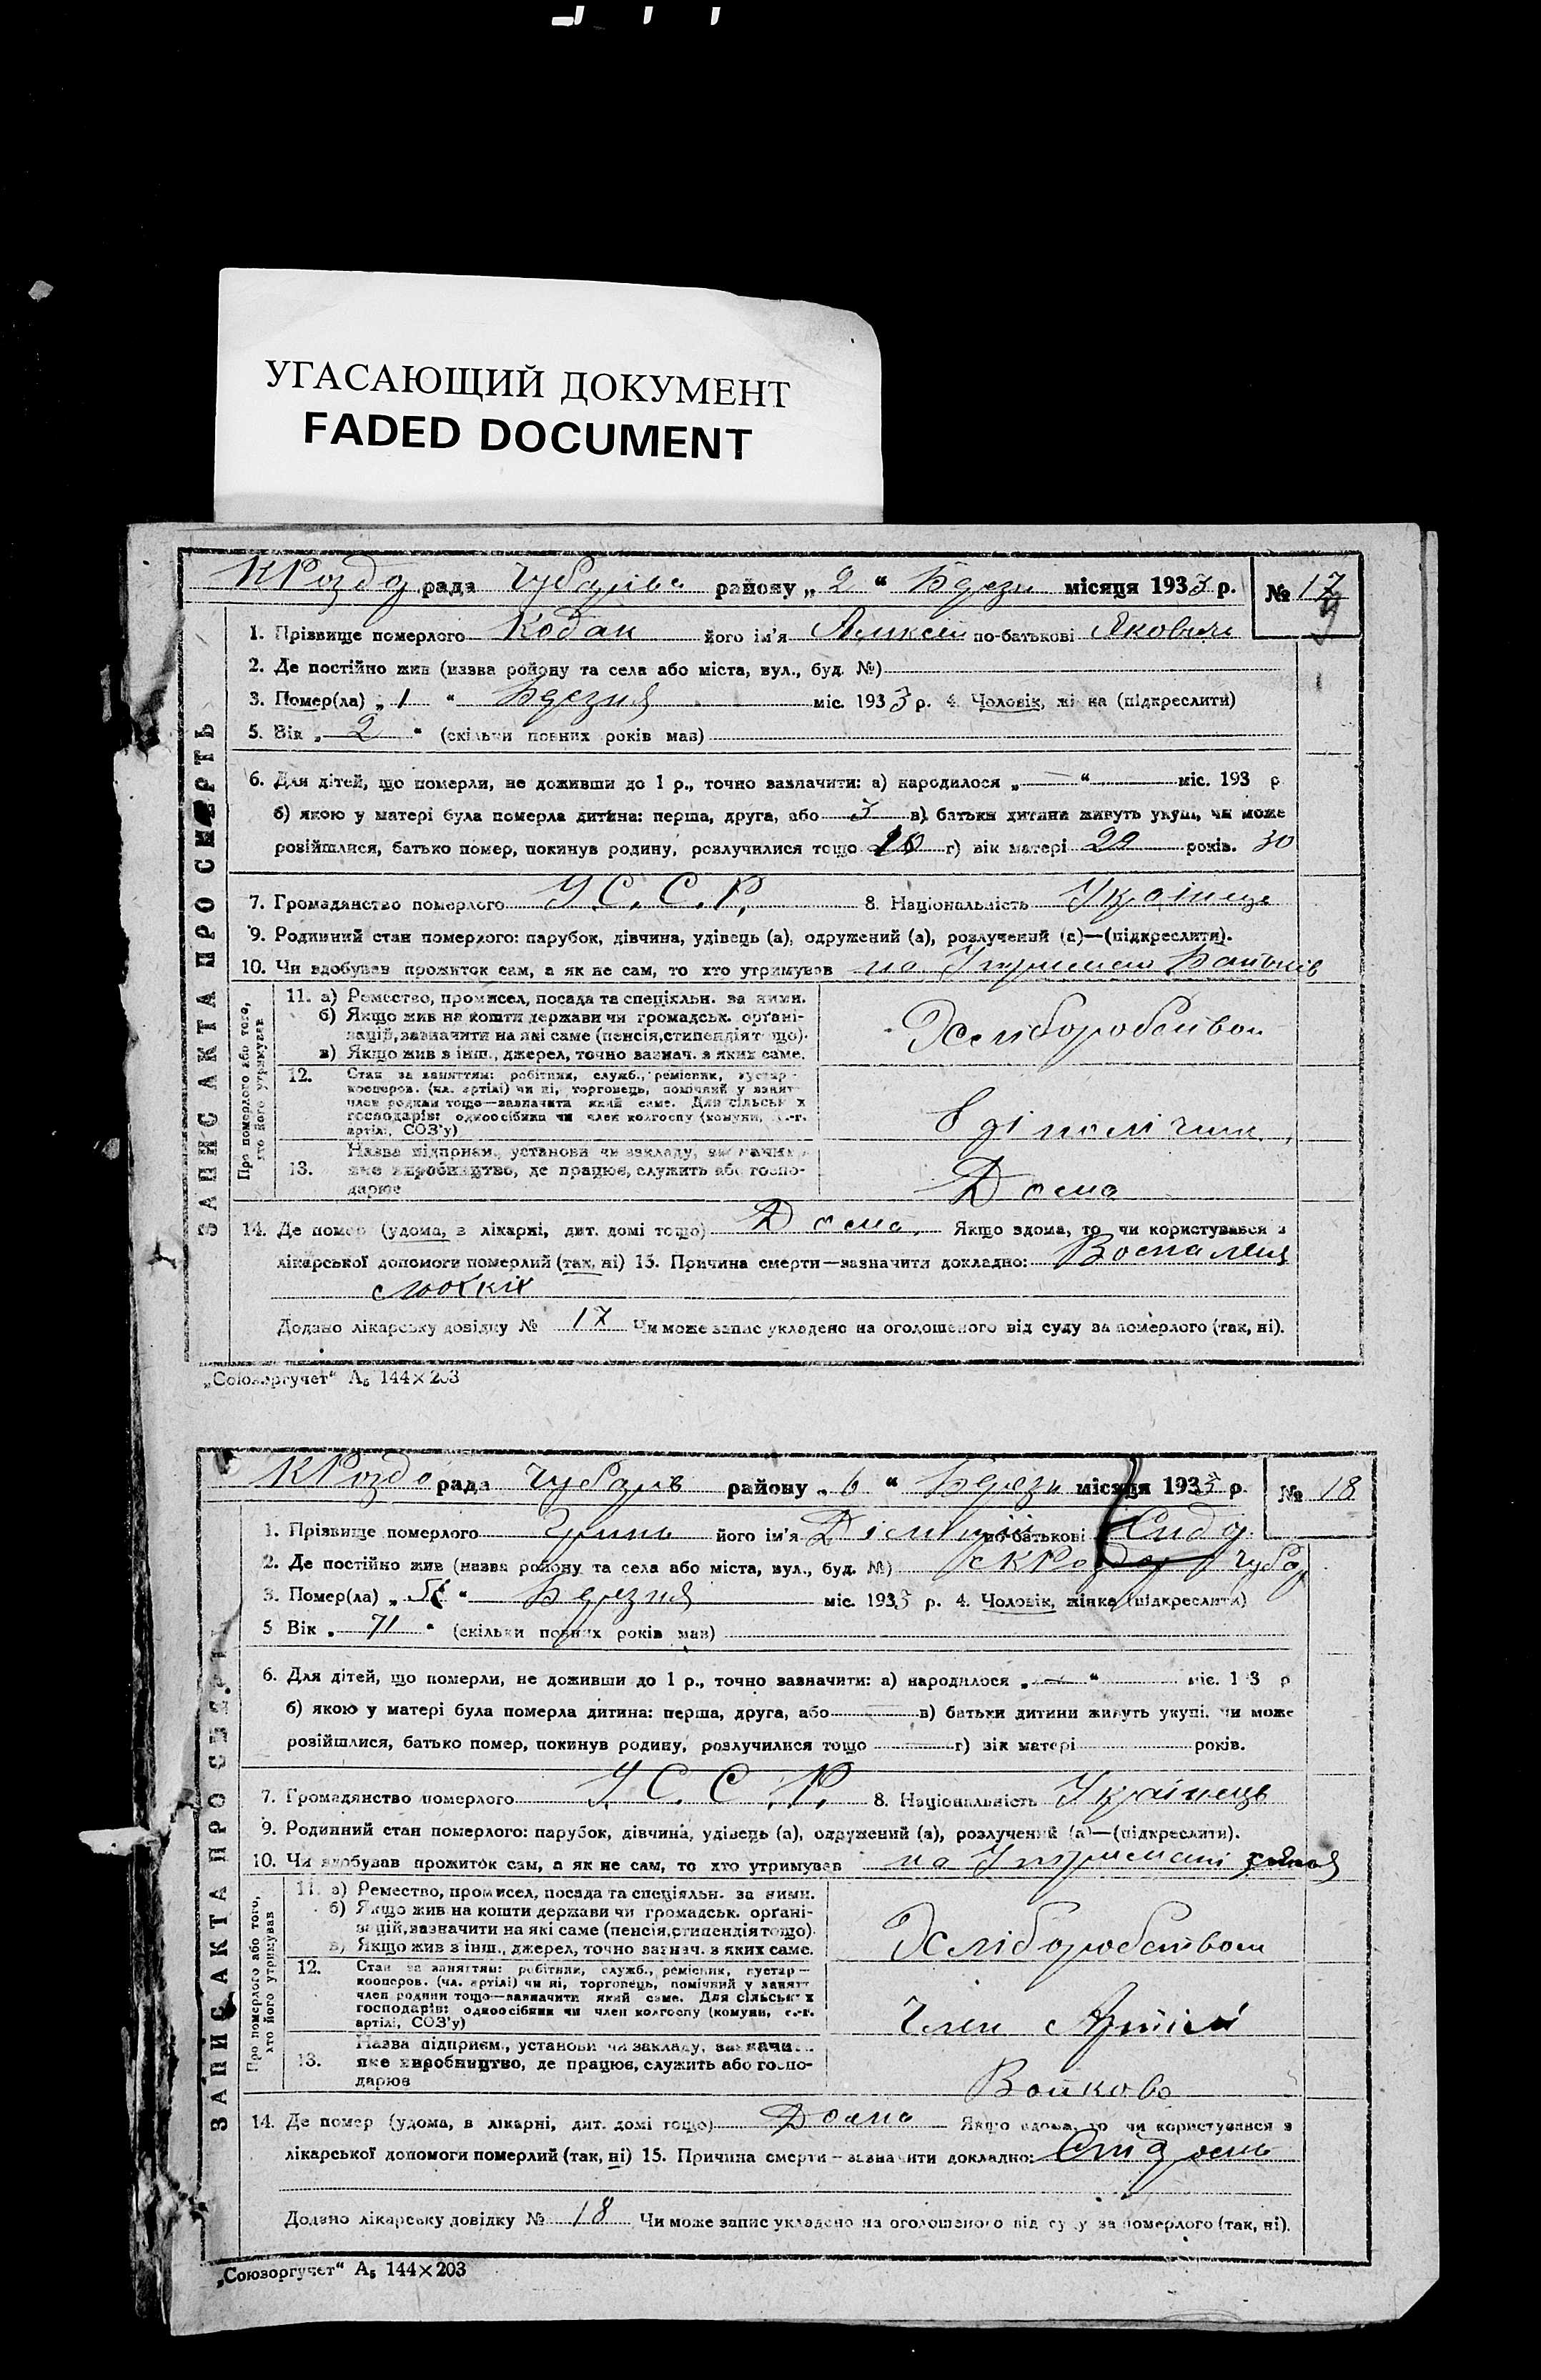 УГАСАЮЩИЙ ДОКУМЕНТ
FADED DOCUMENT
рада району „ 2 “ місяця 1933 р. № 17
ЗАПИС АКТА ПРО СМЕРТЬ
1. Прізвище померлого Кодак його ім'я по-батькові Якович
2. Де постійно жив (назва району та села або міста, вул., буд. №)
3. Помер(ла) „ 1 “ Березня міс. 1933 р. 4. Чоловік, жінка (підкреслити)
5. Вік „ 2 “ (скільки повних років мав)
6. Для дітей, що померли, не доживши до 1 р., точно зазначити: а) народилося „ — “ міс. 193 р.
б) якою у матері була померла дитина: перша, друга, або 3 в) батьки дитини живуть укупі, чи може
розійшлися, батько помер, покинув родину, розлучилися тощо г) вік матері років. 30
7. Громадянство померлого У.С.С.Р. 8. Національність
9. Родинний стан померлого: парубок, дівчина, удівець (а), одружений (а), розлучений (а)—(підкреслити).
10. Чи здобував прожиток сам, а як не сам, то хто утримував на
Про померлого або того, хто його утримував
11. а) Ремество, промисел, посада та спеціяльн. за ними.
б) Якщо жив на кошти держави чи громадськ. орґані-
зацій, зазначити на які саме (пенсія, стипендія тощо).
в) Якщо жив з інш., джерел, точно зазнач. з яких саме.
12. Стан за заняттям: робітник, служб., ремісник, кустар—
кооперов. (чл. артілі) чи ні, торговець, помічний у занятт
член родини тощо—зазначити який саме. Для сільських
господарів: одноосібник чи член колгоспу (комуни, с.-г.
артілі, СОЗ'у)
Назва підприєм., установи чи закладу, зазначити
13. яке виробництво, де працює, служить або госпо-
дарює
Дома
14. Де помер (удома, в лікарні, дит. домі тощо) Дома Якщо вдома, то чи користувався з
лікарської допомоги померлий (так, ні) 15. Причина смерти—зазначити докладно:
Додано лікарську довідку № 17 Чи може запис укладено на оголошеного від суду за померлого (так, ні).
„Союзоргучет“ А₅ 144×203
рада району „ 6 “ місяця 1933 р. № 18
ЗАПИС АКТА ПРО СМЕРТЬ
1. Прізвище померлого його ім'я по-батькові
2. Де постійно жив (назва району та села або міста, вул., буд. №)
3. Помер(ла) „ “ Березня міс. 1933 р. 4. Чоловік, жінка (підкреслити)
5 Вік „ 71 “ (скільки повних років мав)
6. Для дітей, що померли, не доживши до 1 р., точно зазначити: а) народилося „ — “ міс. 193 р
б) якою у матері була померла дитина: перша, друга, або — в) батьки дитини живуть укупі. чи може
розійшлися, батько помер, покинув родину, розлучилися тощо — г) вік матері років.
7. Громадянство померлого У.С.С.Р. 8. Національність Українець
9. Родинний стан померлого: парубок, дівчина, удівець (а), одружений (а), розлучений (а)—(підкреслити).
10. Чи здобував прожиток сам, а як не сам, то хто утримував на
Про померлого або того, хто його утримував
11. а) Ремество, промисел, посада та спеціяльн. за ними.
б) Якщо жив на кошти держави чи громадськ. орґані-
зацій, зазначити на які саме (пенсія, стипендія тощо).
в) Якщо жив з інш., джерел, точно зазнач. з яких саме.
Хліборобством
12. Стан за заняттям: робітник, служб., ремісник, кустар—
кооперов. (чл. артілі) чи ні, торговець, помічний у занятт
член родини тощо—зазначити який саме. Для сільських
господарів: одноосібник чи член колгоспу (комуни, с.-г.
артілі, СОЗ'у)
Член Артілі
Назва підприєм., установи чи закладу, зазначити
13. яке виробництво, де працює, служить або госпо-
дарює
14. Де помер (удома, в лікарні, дит. домі тощо) Дома Якщо вдома, то чи користувався з
лікарської допомоги померлий (так, ні) 15. Причина смерти—зазначити докладно:
Додано лікарську довідку № 18 Чи може запис укладено на оголошеного від суду за померлого (так, ні).
„Союзоргучет“ А₅ 144×203